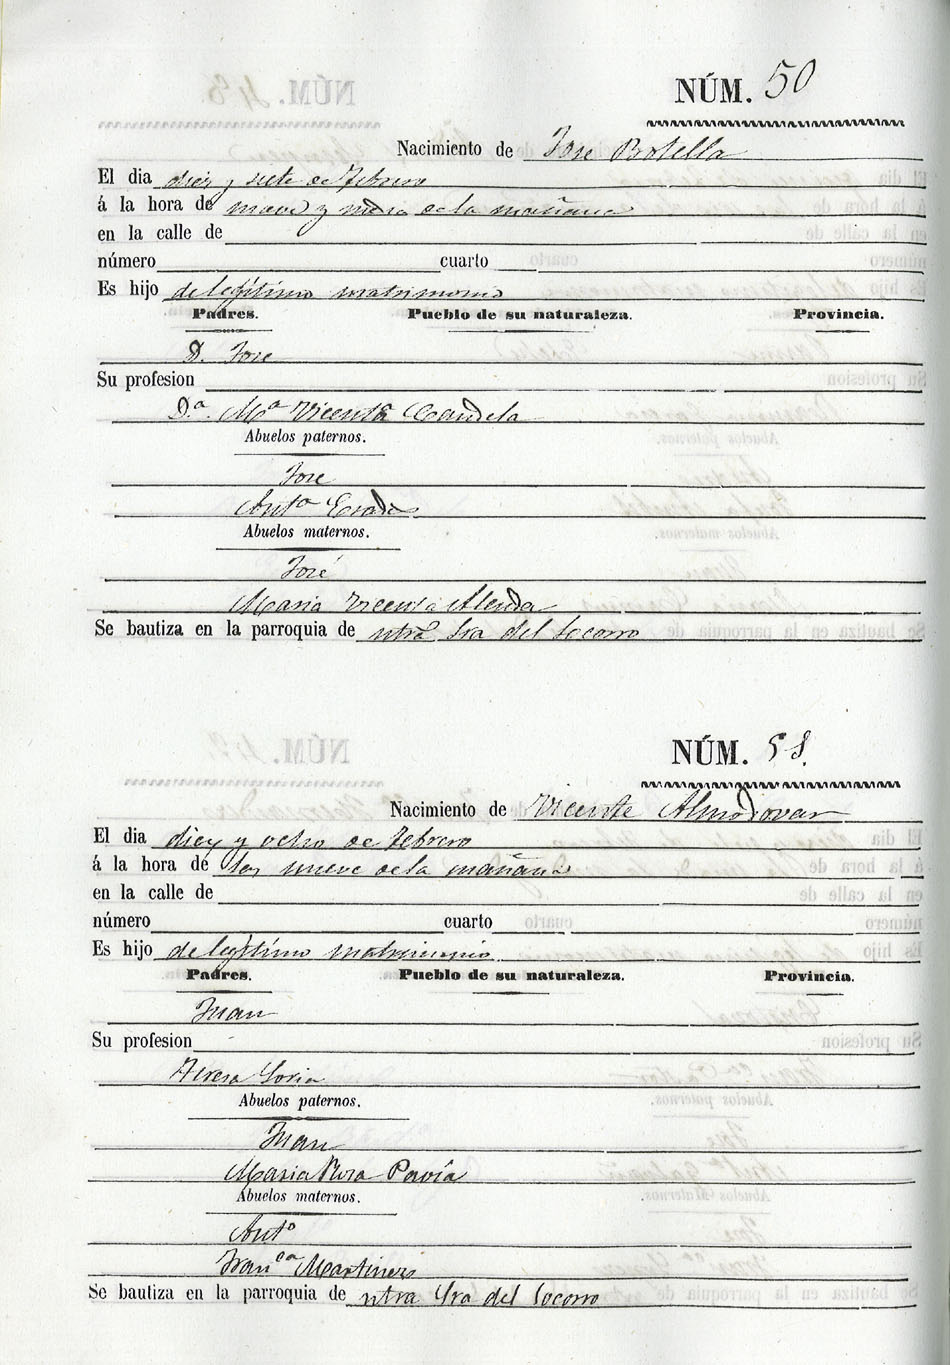 NÚM. 50
Nacimiento de Jose Botella
El dia diez y siete de Febrero
á la hora de nueve y media de la mañana
en la calle de
número cuarto
Es hijo de legítimo matrimonio
Padres. Pueblo de su naturaleza. Provincia.
D. Jose
Su profesion
Dª. Mª Vicenta Candela
Abuelos paternos.
Jose
Antª
Abuelos maternos.
José
Maria Vicenta Alenda
Se bautiza en la parroquia de ntra Sra del Socorro
NÚM. 51.
Nacimiento de Vicente Almodovar
El dia diez y ocho de Febrero
á la hora de las nueve de la mañana
en la calle de
número cuarto
Es hijo de legítimo matrimonio
Padres. Pueblo de su naturaleza. Provincia.
Juan
Su profesion
Teresa Soria
Abuelos paternos.
Juan
Maria Rosa Pavía
Abuelos maternos.
Antº
Franᶜª Martinez
Se bautiza en la parroquia de ntra Sra del Socorro